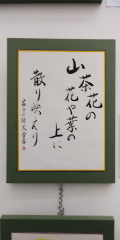 山茶花の
花や葉の
上に
散り映えり